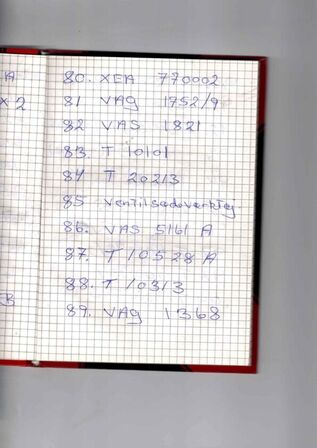 A
x 2
B
80. XEA 770002
81 VAG 1752/9
82 VAS 1821
83. T 10101
84 T 20213
85 Ventilsädoverktøj
86. VAS 5161 A
87. T 10528 A
88. T 10313
89. VAG 1368